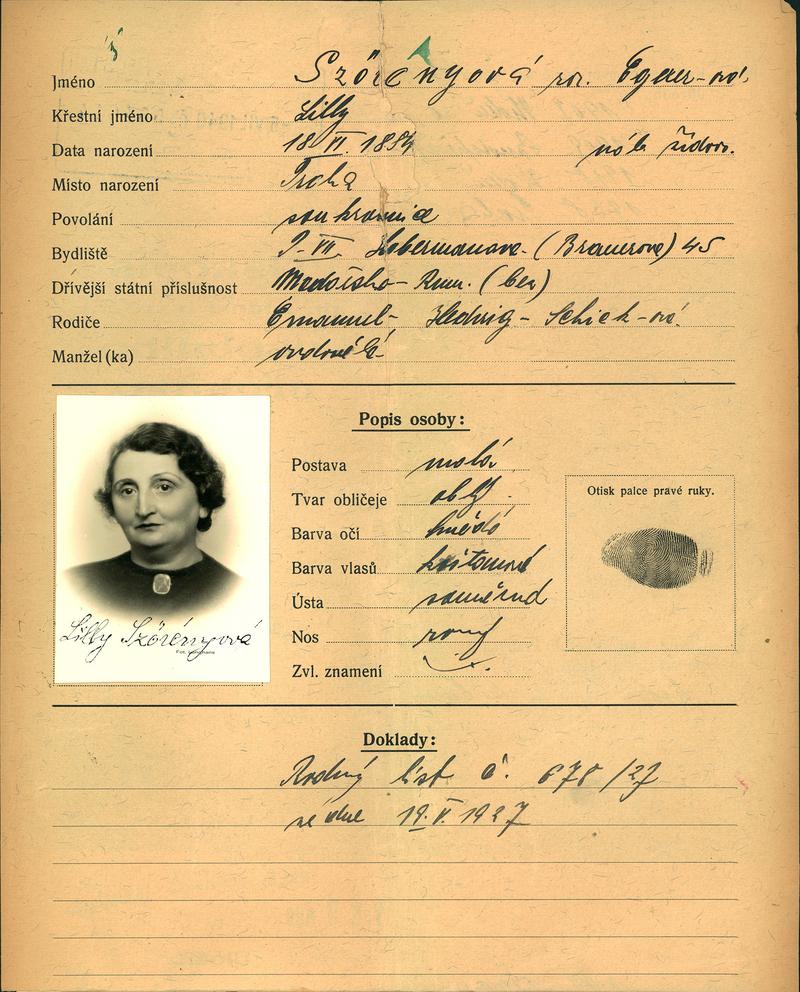 Jméno Szörényová roz. Egger-ová.
Křestní jméno Lilly
Data narození 18. VI. 1884 náb. židov.
Místo narození Praha
Povolání soukromnice
Bydliště P. VII. (Brauerova) 45
Dřívější státní příslušnost
Rodiče Emanuel - Hedwig - Schick-ová.
Manžel (ka) ovdovělá
Popis osoby:
Postava malá
Tvar obličeje obl.
Barva očí hnědé
Barva vlasů kaštanové
Ústa souměrná
Nos rovný
Zvl. znamení
Otisk palce pravé ruky.
Lilly Szörényová
Doklady:
Rodný list č. 678/27
ze dne 19. V. 1927